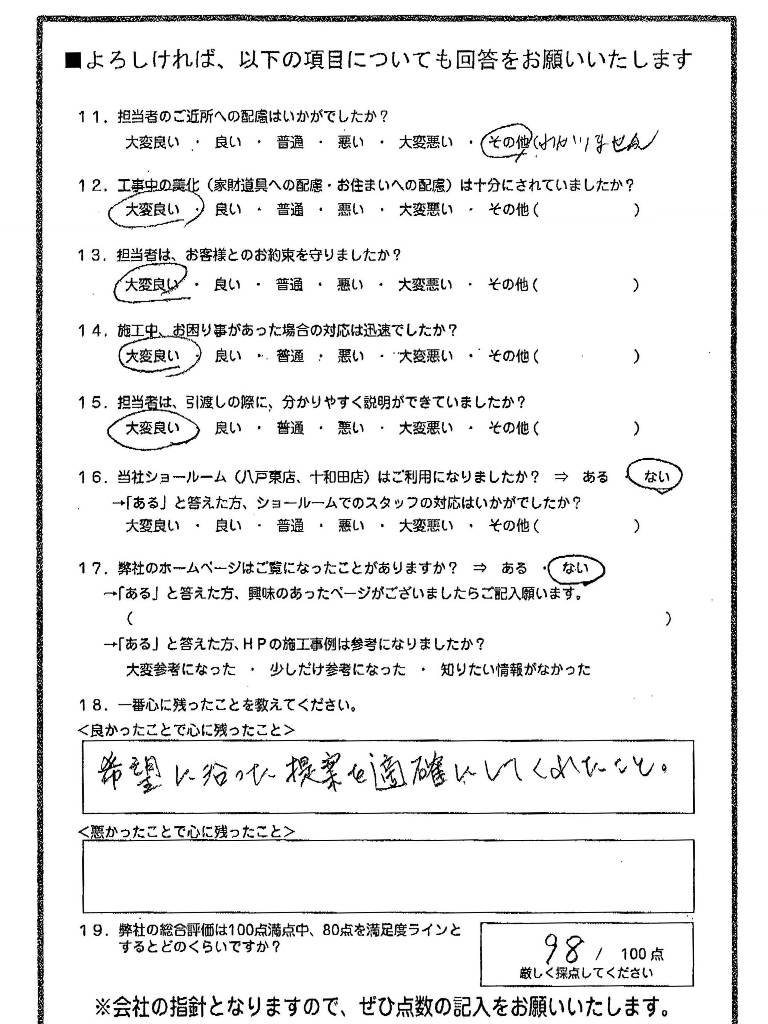 ■よろしければ、以下の項目についても回答をお願いいたします
11．担当者のご近所への配慮はいかがでしたか？
大変良い ・ 良い ・ 普通 ・ 悪い ・ 大変悪い ・ その他(わかりません
12．工事中の養化（家財道具への配慮・お住まいへの配慮）は十分にされていましたか？
大変良い ・ 良い ・ 普通 ・ 悪い ・ 大変悪い ・ その他( )
13．担当者は、お客様とのお約束を守りましたか？
大変良い ・ 良い ・ 普通 ・ 悪い ・ 大変悪い ・ その他( )
14．施工中、お困り事があった場合の対応は迅速でしたか？
大変良い ・ 良い ・ 普通 ・ 悪い ・ 大変悪い ・ その他( )
15．担当者は、引渡しの際に、分かりやすく説明ができていましたか？
大変良い ・ 良い ・ 普通 ・ 悪い ・ 大変悪い ・ その他( )
16．当社ショールーム（八戸東店、十和田店）はご利用になりましたか？ ⇒ ある ・ ない
→「ある」と答えた方、ショールームでのスタッフの対応はいかがでしたか？
大変良い ・ 良い ・ 普通 ・ 悪い ・ 大変悪い ・ その他( )
17．弊社のホームページはご覧になったことがありますか？ ⇒ ある ・ ない
→「ある」と答えた方、興味のあったページがございましたらご記入願います。
( )
→「ある」と答えた方、HPの施工事例は参考になりましたか？
大変参考になった ・ 少しだけ参考になった ・ 知りたい情報がなかった
18．一番心に残ったことを教えてください。
<良かったことで心に残ったこと>
希望に沿った提案を適確にしてくれたこと。
<悪かったことで心に残ったこと>
19．弊社の総合評価は100点満点中、80点を満足度ラインと
するとどのくらいですか？
98 / 100点
厳しく採点してください
※会社の指針となりますので、ぜひ点数の記入をお願いいたします。